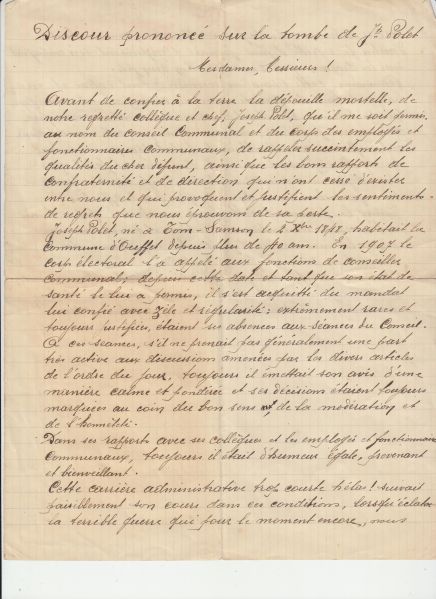 Discour prononcé sur la tombe de Jh Polet
Mesdames, Messieurs !
Avant de confier à la terre la dépouille mortelle, de
notre regretté collègue et chef, Joseph Polet, qu'il me soit permis,
au nom du conseil Communal et du Corps des employés et
fonctionnaires Communaux, de rappeler succintement les
qualités du cher défunt, ainsi que les bons rapports de
confraternité et de direction qui n'ont cessé d'exister
entre nous et qui provoquent et justifient les sentiments
de regrets que nous éprouvons de sa perte.
Joseph Polet, né à Tom-Samson le 4 Xbre 1848, habitait la
Commune d'Ouffet depuis plus de 40 ans. En 1907 le
corps électoral l'a appelé aux fonctions de conseiller
Communal; depuis cette date et tant que son état de
santé le lui a permis, il s'est acquitté du mandat
lui confié avec zèle et régularité: extrêmement rares et
toujours justifiées, étaient ses absences aux séances du Conseil.
A ces séances, s'il ne prenait pas généralement une part
très active aux discussions amenées par les divers articles
de l'ordre du jour, toujours il émettait son avis d'une
manière calme et pondérée et ses décisions étaient toujours
marquées au coin du bon sens, de la modération et
de l'honnêteté.
Dans ses rapports avec ses collègues et les employés et fonctionnaires
Communaux, toujours il était d'humeur égale, prévenant
et bienveillant.
Cette carrière administrative trop courte hélas ! suivait
paisiblement son cours dans ces conditions, lorsqu'éclata
la terrible guerre qui pour le moment encore, nous